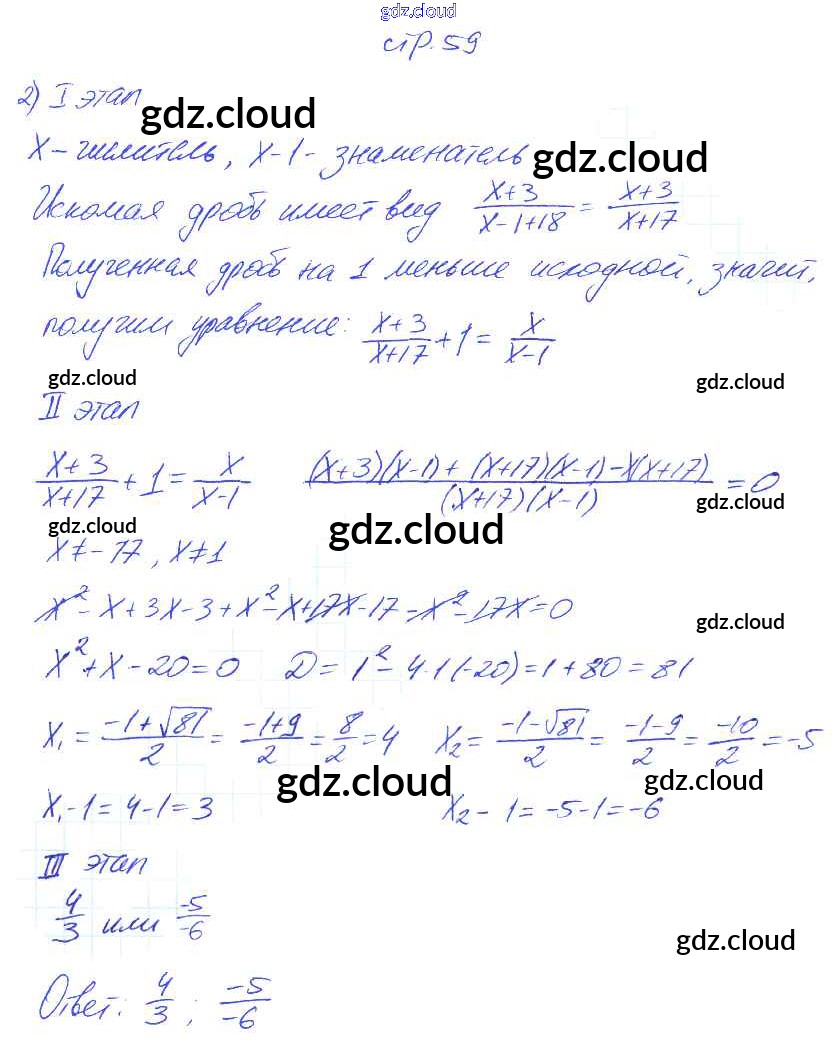 gdz.cloud
стр. 59
2) I этап
gdz.cloud
x – числитель, x-1 - знаменатель
gdz.cloud
Искомая дробь имеет вид (x+3)/(x-1+18) = (x+3)/(x+17)
Полученная дробь на 1 меньше исходной, значит,
получим уравнение: (x+3)/(x+17) + 1 = x/(x-1)
gdz.cloud gdz.cloud
II этап
(x+3)/(x+17) + 1 = x/(x-1) ((x+3)(x-1) + (x+17)(x-1) - x(x+17))/((x+17)(x-1)) = 0
gdz.cloud
gdz.cloud gdz.cloud
x ≠ -17, x ≠ 1
x² - x + 3x - 3 + x² - x + 17x - 17 - x² - 17x = 0
gdz.cloud
x² + x - 20 = 0 D = 1² - 4·1·(-20) = 1 + 80 = 81
x₁ = (-1+√81)/2 = (-1+9)/2 = 8/2 = 4 x₂ = (-1-√81)/2 = (-1-9)/2 = -10/2 = -5
gdz.cloud gdz.cloud
x₁ - 1 = 4 - 1 = 3 x₂ - 1 = -5 - 1 = -6
III этап
4/3 или -5/-6
gdz.cloud
Ответ: 4/3 ; -5/-6